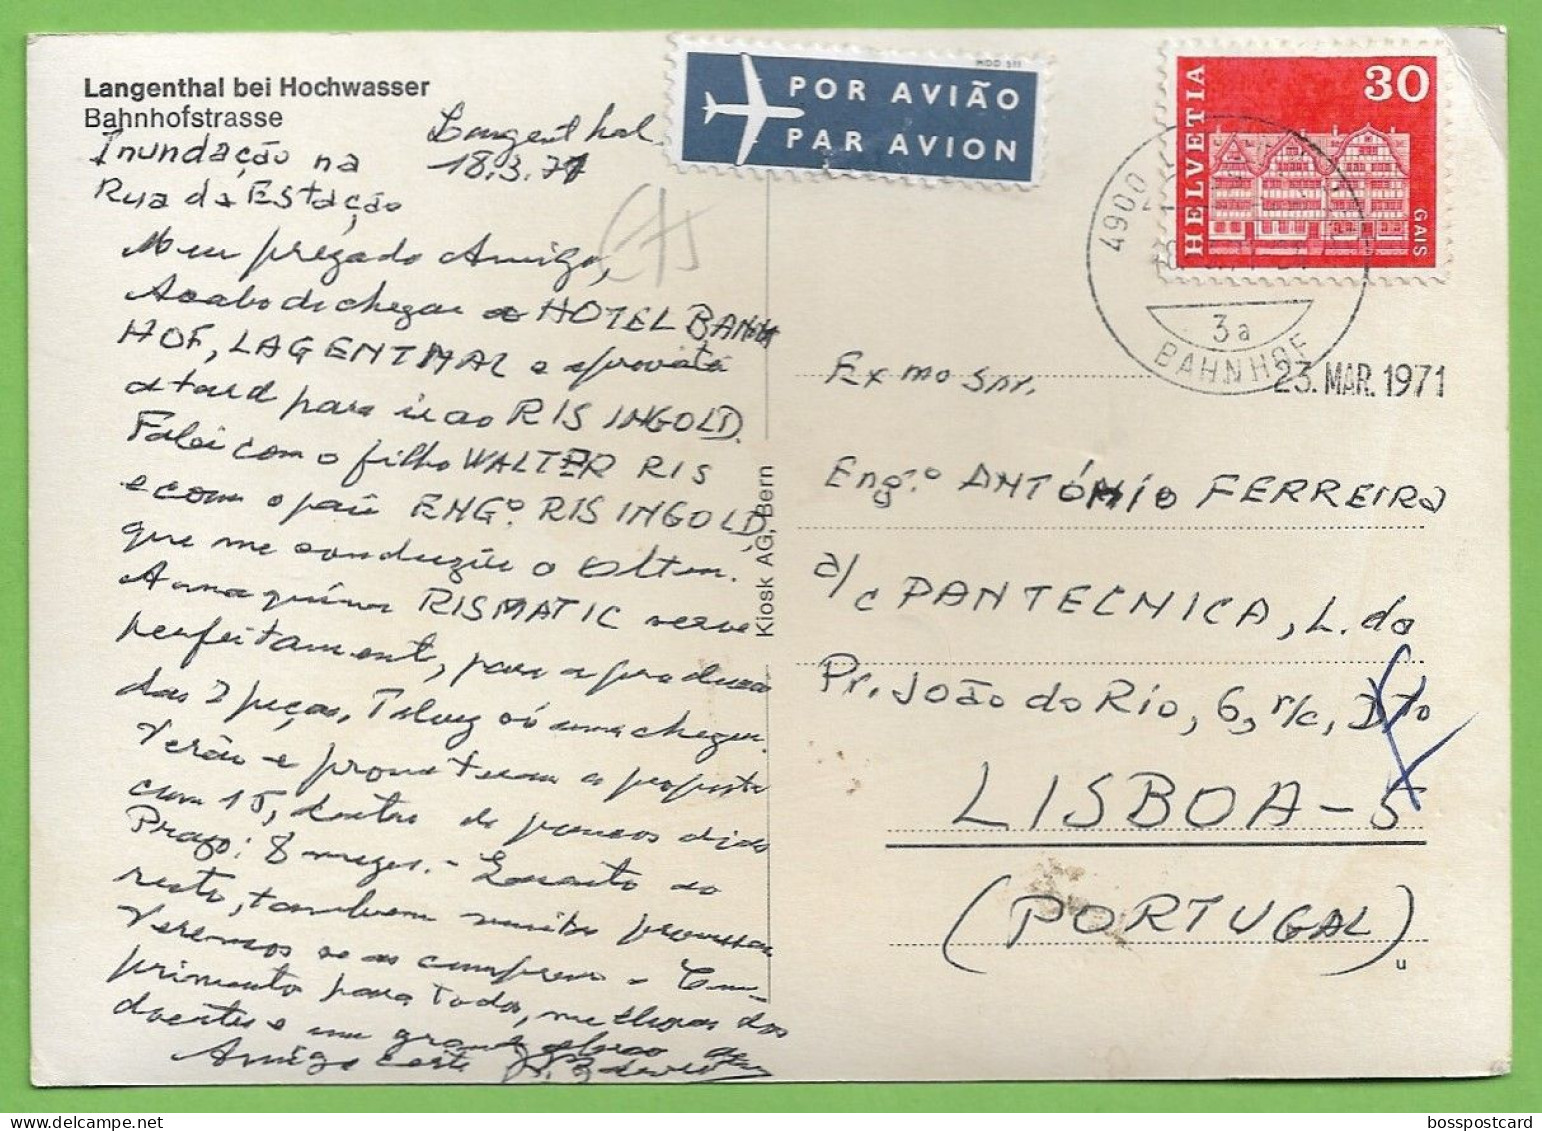 Langenthal bei Hochwasser
Bahnhofstrasse
Inundação na
Rua da Estação
Langenthal
18.3.71
Meu prezado Amigo,
Acabo de chegar ao HOTEL BAHN
HOF, LAGENTHAL e aproveito
a tard para ir ao RIS INGOLD.
Falei com o filho WALTER RIS
e com o pai ENGº. RIS INGOLD,
que me conduziu a Olten.
A maquina RISMATIC serve
perfeitamente, para a produção
das 2 peças, Talvez só uma chegue.
Verão e prometeram a proposta
com 15, dentro de poucos dias
Prazo: 8 meses. - Quanto ao
resto, também muitas promessas
Veremos se as cumprem - Cum-
primentos para todos, melhoras dos
doentes e um grande abraço do
Amigo certo
POR AVIÃO
PAR AVION
MOD 511
HELVETIA
30
GAIS
4900
3a
BAHNHOF
23. MAR. 1971
Exmo Snr.
Eng.º ANTÓNIO FERREIRA
a/c PANTECNICA, L.da
Pr. João do Rio, 6, r/c, Dto
LISBOA-5
(PORTUGAL)
u
Kiosk AG, Bern
bosspostcard